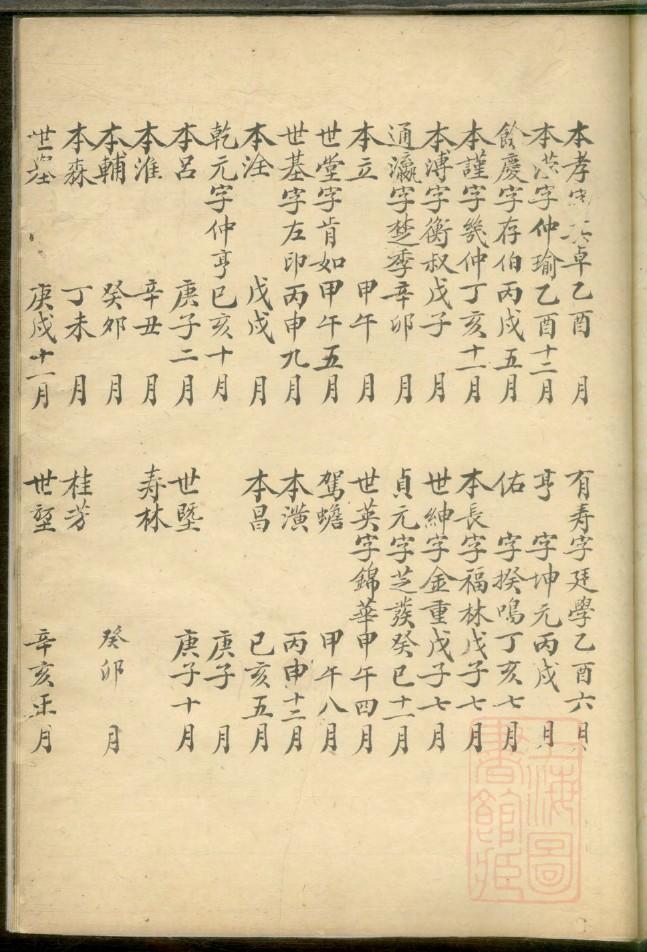 本孝字 卓乙酉 月
有寿字廷學乙酉六月
本洪字仲瑜乙酉十二月
亨 字坤元丙戌 月
餘慶字存伯丙戌五月
佑 字揆鳴丁亥七月
本謹字幾仲丁亥十一月
本長字福林戊子七月
本溥字衡叔戊子 月
世紳字金重戊子七月
通瀛字楚季辛卯 月
貞元字芝蕟癸巳十一月
本立 甲午 月
世英字錦華甲午四月
世堂字肯如甲午五月
駕蟾 甲午八月
世基字左印丙申九月
本潢 丙申十二月
本泩 戊戌 月
本昌 己亥五月
乾元字仲亨己亥十月
庚子 月
本呂 庚子二月
世塈 庚子十月
本淮 辛丑 月
寿林
本輔 癸卯 月
癸卯 月
本森 丁未 月
桂芳
世 庚戌十一月
世堅 辛亥正月
海圖書館